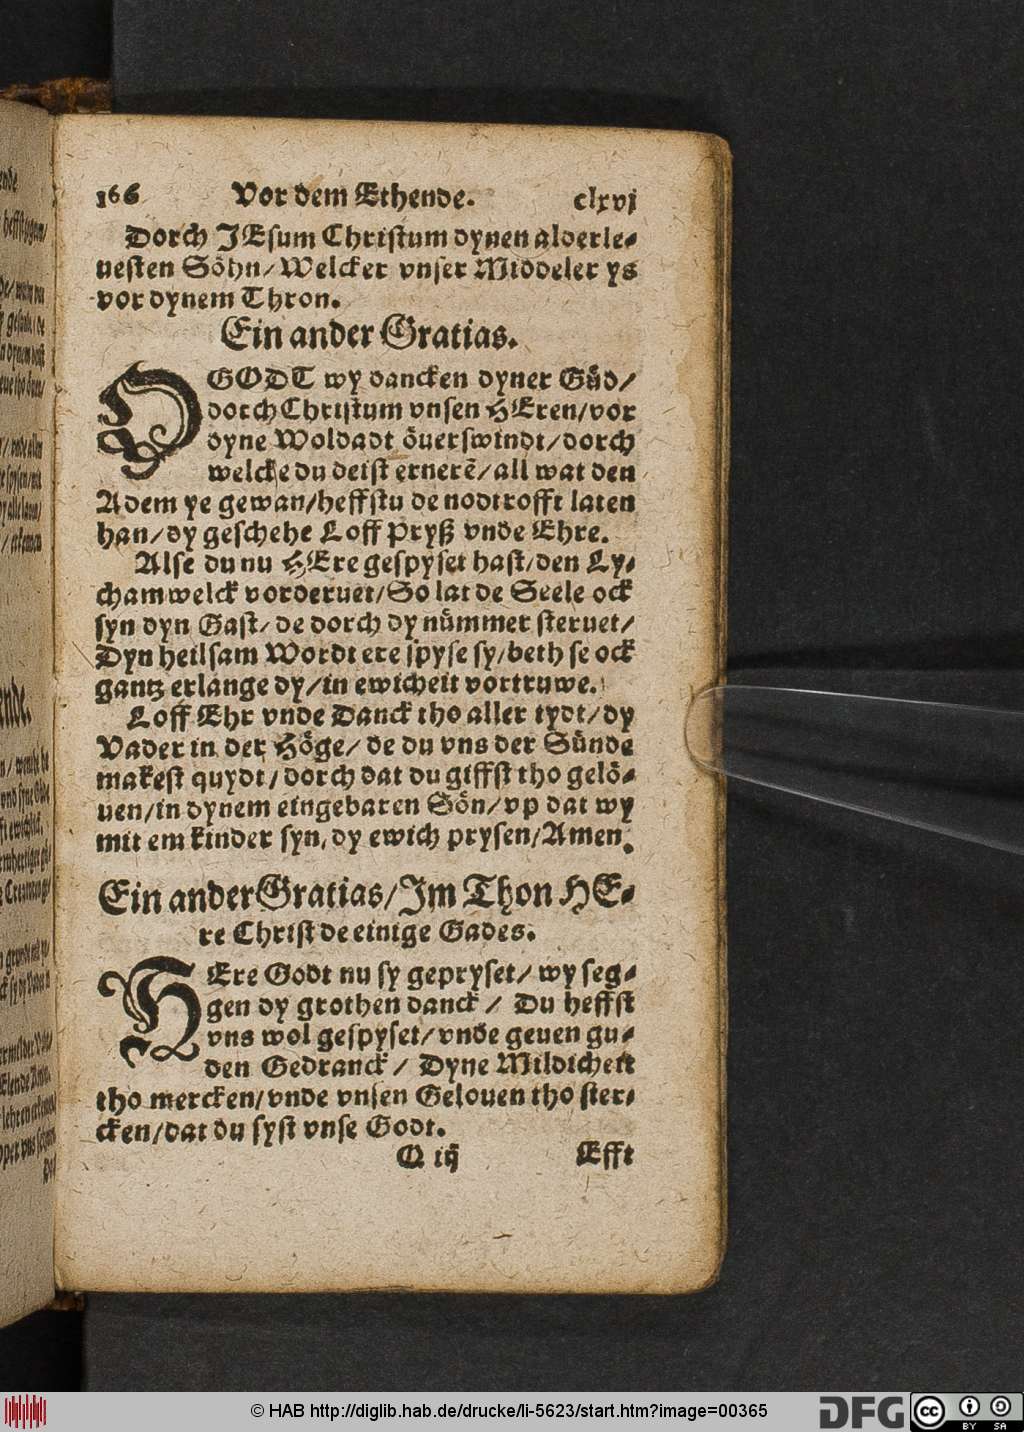 166 Vor dem Ethende. clxvj
Dorch JEsum Christum dynen alderle-
uesten Söhn/ Welcker vnser Middeler ys
vor dynem Thron.
Ein ander Gratias.
O GODT wy dancken dyner Güd/
dorch Christum vnsen HEren/ vor
dyne Woldadt öuerswindt/ dorch
welcke du deist ernerē/ all wat den
Adem ye gewan/ heffstu de nodtrofft laten
han/ dy geschehe Loff Pryß vnde Ehre.
Alse du nu HEre gespyset hast/ den Ly-
cham welck vorderuet/ So lat de Seele ock
syn dyn Gast/ de dorch dy nümmer steruet/
Dyn heilsam Wordt ere spyse sy/ beth se ock
gantz erlange dy/ in ewicheit vortruwe.
Loff Ehr vnde Danck tho aller tydt/ dy
Vader in der Höge/ de du vns der Sünde
makest quydt/ dorch dat du giffst tho gelö-
uen/ in dynem eingebaren Sön/ vp dat wy
mit em kinder syn, dy ewich prysen/ Amen.
Ein ander Gratias/ Jm Thon HE-
re Christ de einige Gades.
HEre Godt nu sy gepryset/ wy seg-
gen dy grothen danck/ Du heffst
vns wol gespyset/ vnde geuen gu-
den Gedranck/ Dyne Mildicheit
tho mercken/ vnde vnsen Gelouen tho ster-
cken/ dat du syst vnse Godt.
Q iij Efft
© HAB http://diglib.hab.de/drucke/li-5623/start.htm?image=00365
DFG cc BY SA